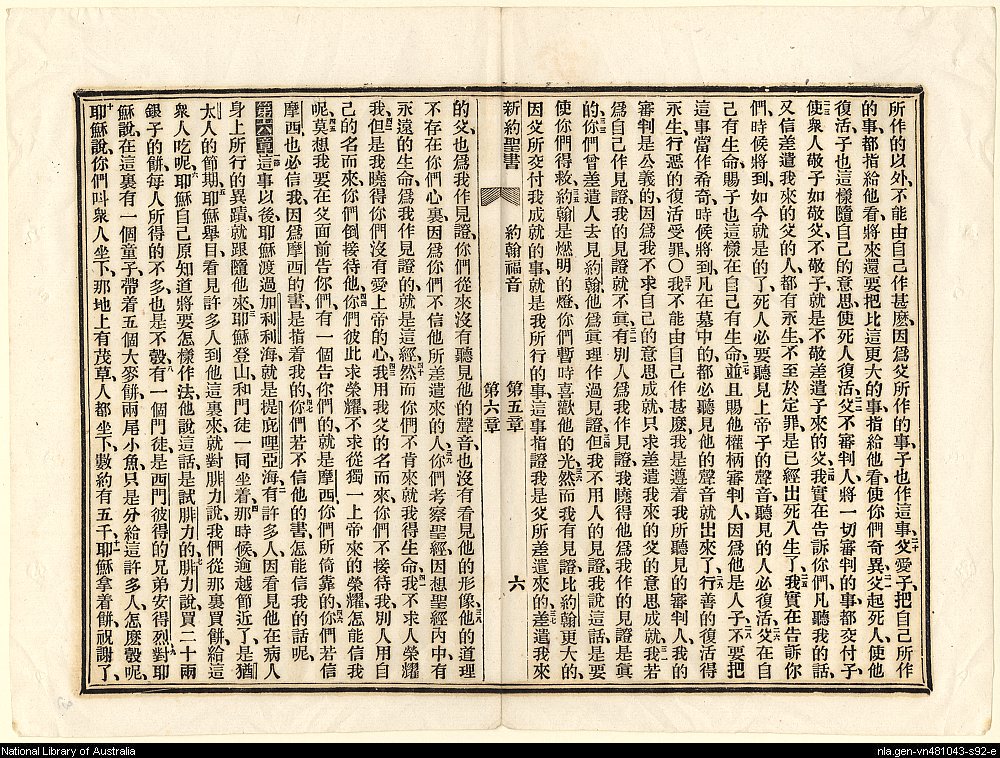 所作的以外、不能由自己作甚麽、因爲父所作的事、子也作這事、二十父愛子、把自己所作
的事、都指給他看、將來還要把比這更大的事指給他看、使你們奇異、二一父起死人、使他
復活、子也這樣隨自己的意思、使死人復活、二二父不審判人、將一切審判的事都交付子、
二三使衆人敬子如敬父、不敬子、就是不敬差遣子來的父、二四我實在告訴你們、凡聽我的話、
又信差遣我來的父的人、都有永生、不至於定罪、是已經出死入生了、二五我實在告訴你
們、時候將到、如今就是的了、死人必要聽見上帝子的聲音、聽見的人必復活、二六父在自
己有生命、賜子也這樣在自己有生命、二七並且賜他權柄審判人、因爲他是人子、二八不要把
這事當作希奇、時候將到、凡在墓中的、都必聽見他的聲音、就出來了、二九行善的復活得
永生、行惡的復活受罪、〇三十我不能由自己作甚麽、我是遵着我所聽見的審判人、我的
審判是公義的、因爲我不求自己的意思成就、只求差遣我來的父的意思成就、三一我若
爲自己作見證、我的見證就不眞、三二有別人爲我作見證、我曉得他爲我作的見證是眞
的、三三你們曾差遣人去見約翰、他爲眞理作過見證、三四但我不用人的見證、我說這話、是要
使你們得救、三五約翰是燃明的燈、你們暫時喜歡他的光、三六然而我有見證、比約翰更大的、
因父所交付我成就的事、就是我所行的事、這事指證我是父所差遣來的、三七差遣我來
新約聖書 約翰福音 第五章 第六章 六
的父、也爲我作見證、你們從來沒有聽見他的聲音、也沒有看見他的形像、三八他的道理
不存在你們心裏、因爲你們不信他所差遣來的人、三九你們考察聖經、因想聖經內中有
永遠的生命、爲我作見證的就是這經、四十然而你們不肯來就我得生命、四一我不求人榮耀
我、四二但是我曉得你們沒有愛上帝的心、四三我用我父的名而來、你們不接待我、別人用自
己的名而來、你們倒接待他、四四你們彼此求榮耀、不求從獨一上帝來的榮耀、怎能信我
呢、四五莫想我要在父面前告你們、有一個告你們的、就是摩西、你們所倚靠的、四六你們若信
摩西、也必信我、因爲摩西的書、是指着我的、四七你們若不信他的書、怎能信我的話呢、
第六章 一這事以後、耶穌渡過加利利海、就是提庇哩亞海、二有許多人、因看見他在病人
身上所行的異蹟、就跟隨他來、三耶穌登山、和門徒一同坐着、四那時候逾越節近了、是猶
太人的節期、五耶穌舉目看見許多人到他這裏來、就對腓力說、我們從那裏買餅、給這
衆人吃呢、六耶穌自己原知道將要怎樣作法、他說這話是試腓力的、七腓力說、買二十兩
銀子的餅、每人所得的不多、也是不彀、八有一個門徒、是西門彼得的兄弟安得烈、對耶
穌說、九在這裏有一個童子、帶着五個大麥餅、兩尾小魚、只是分給這許多人、怎麽彀呢、
十耶穌說、你們叫衆人坐下、那地上有茂草、人都坐下、數約有五千、十一耶穌拿着餅、祝謝了、
National Library of Australia
nla.gen-vn481043-s92-e